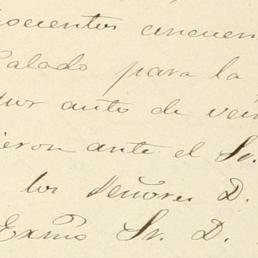 ocientos cincuen
Salado para la
por auto de vein
ieron ante el Sr.
los Señores D.
Exmo Sr. D.